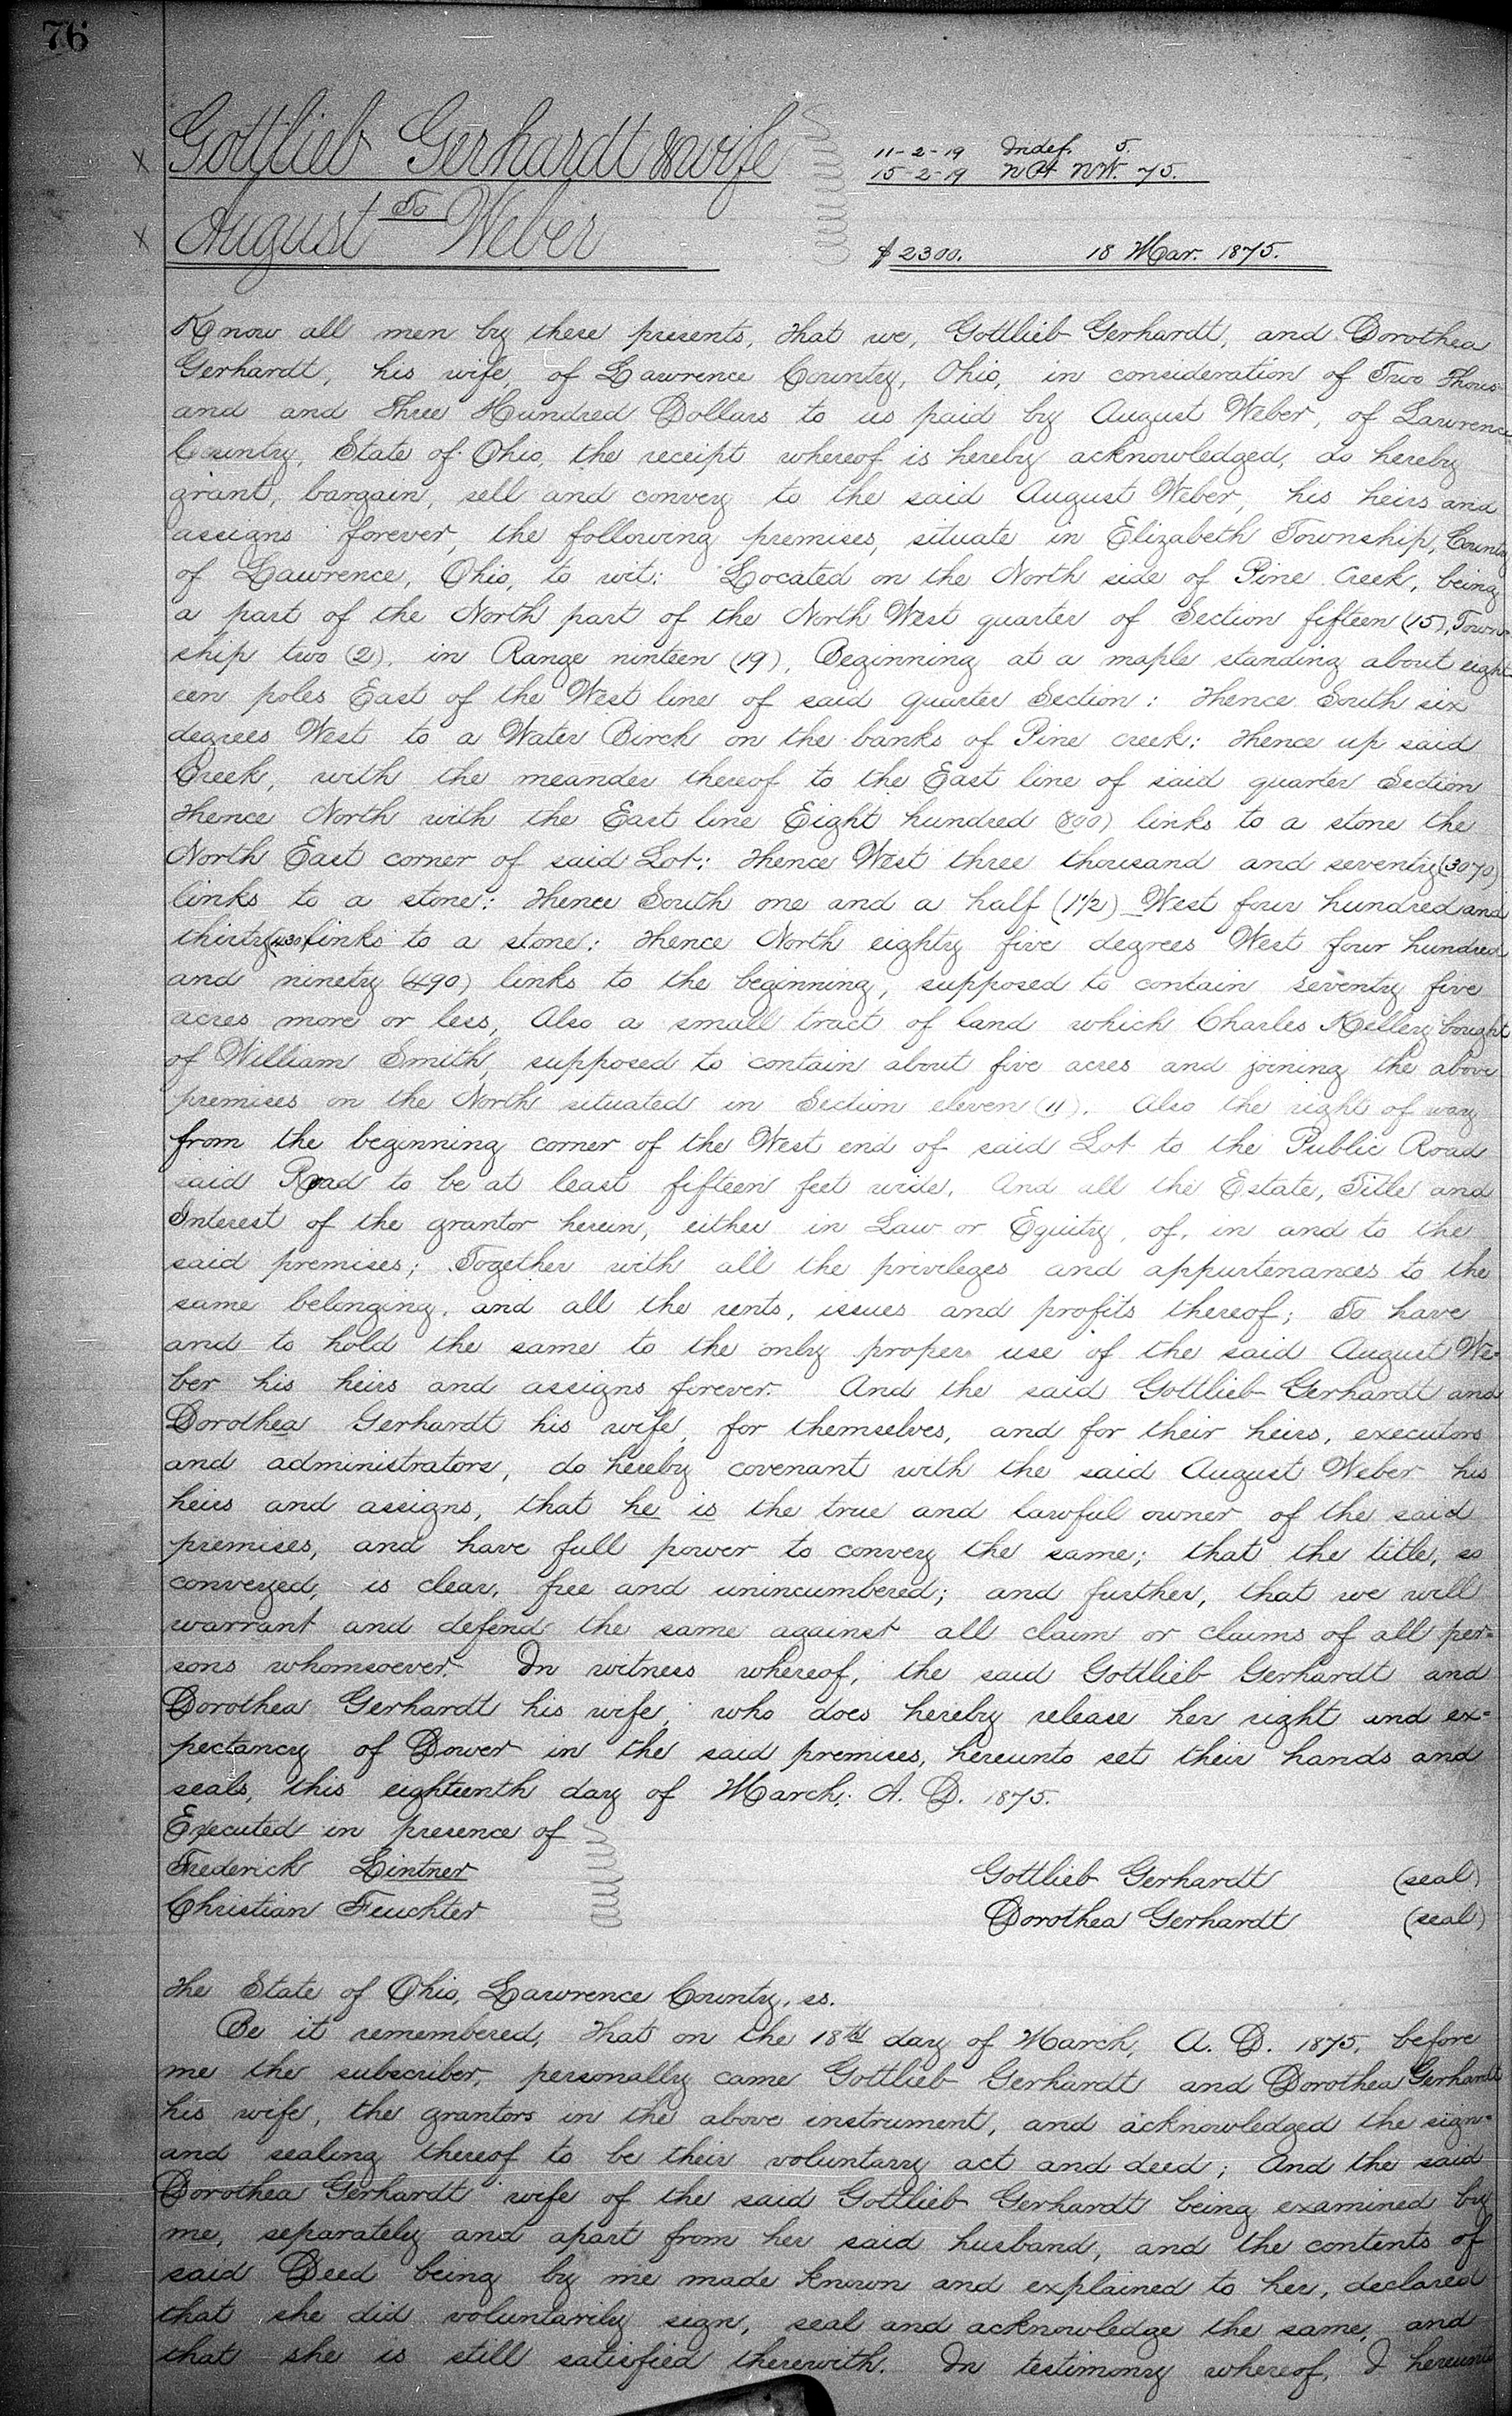 76
Gottlieb Gerhardt & wife
To
August Weber
11-2-19 Indef. 5.
15-2-19 N Pt NW. 75.
$2300. 18 Mar. 1875.
Know all men by these presents, that we, Gottlieb Gerhardt, and Dorothea
Gerhardt, his wife, of Lawrence County, Ohio, in consideration of Two Thous-
and and Three Hundred Dollars to us paid by August Weber, of Lawrence
County, State of Ohio, the receipt whereof is hereby acknowledged, do hereby
grant, bargain, sell and convey to the said August Weber, his heirs and
assigns forever, the following premises, situate in Elizabeth Township, County
of Lawrence, Ohio, to wit: Located on the North side of Pine Creek, being
a part of the North part of the North West quarter of Section fifteen (15), Town-
ship two (2), in Range ninteen (19), Beginning at a maple standing about eight-
een poles East of the West line of said quarter Section: Thence South six
degrees West to a Water Birch on the banks of Pine creek: Thence up said
Creek, with the meander thereof to the East line of said quarter Section
Thence North with the East line Eight hundred (800) links to a stone the
North East corner of said Lot: Thence West three thousand and seventy (3070)
links to a stone: Thence South one and a half (1½) West four hundred and
thirty (430) links to a stone: Thence North eighty five degrees West four hundred
and ninety (490) links to the beginning, supposed to contain seventy five
acres more or less, Also a small tract of land which Charles Kellery bought
of William Smith, supposed to contain about five acres and joining the above
premises on the North situated in Section eleven (11). Also the right of way
from the beginning corner of the West end of said Lot to the Public Road
said Road to be at least fifteen feet wide. And all the Estate, Title and
Interest of the grantor herein, either in Law or Equity, of, in and to the
said premises; Together with all the privileges and appurtenances to the
same belonging, and all the rents, issues and profits thereof; To have
and to hold the same to the only proper use of the said August We-
ber his heirs and assigns forever. And the said Gottlieb Gerhardt and
Dorothea Gerhardt his wife, for themselves, and for their heirs, executors
and administrators, do hereby covenant with the said August Weber his
heirs and assigns, that he is the true and lawful owner of the said
premises, and have full power to convey the same; that the title, so
conveyed, is clear, free and unincumbered; and further, that we will
warrant and defend the same against all claim or claims of all per-
sons whomsoever. In witness whereof, the said Gottlieb Gerhardt and
Dorothea Gerhardt his wife, who does hereby release her right and ex-
pectancy of Dower in the said premises, hereunto set their hands and
seals, this eighteenth day of March, A. D. 1875.
Executed in presence of
Frederick Lintner Gottlieb Gerhardt (seal)
Christian Feuchter Dorothea Gerhardt (seal)
The State of Ohio, Lawrence County, ss.
Be it remembered, that on the 18th day of March, A. D. 1875, before
me the subscriber, personally came Gottlieb Gerhardt and Dorothea Gerhardt
his wife, the grantors in the above instrument, and acknowledged the sign-
and sealing thereof to be their voluntary act and deed; And the said
Dorothea Gerhardt wife of the said Gottlieb Gerhardt being examined by
me, separately and apart from her said husband, and the contents of
said Deed being by me made known and explained to her, declared
that she did voluntarily sign, seal and acknowledge the same, and
that she is still satisfied therewith. In testimony whereof, I hereunto